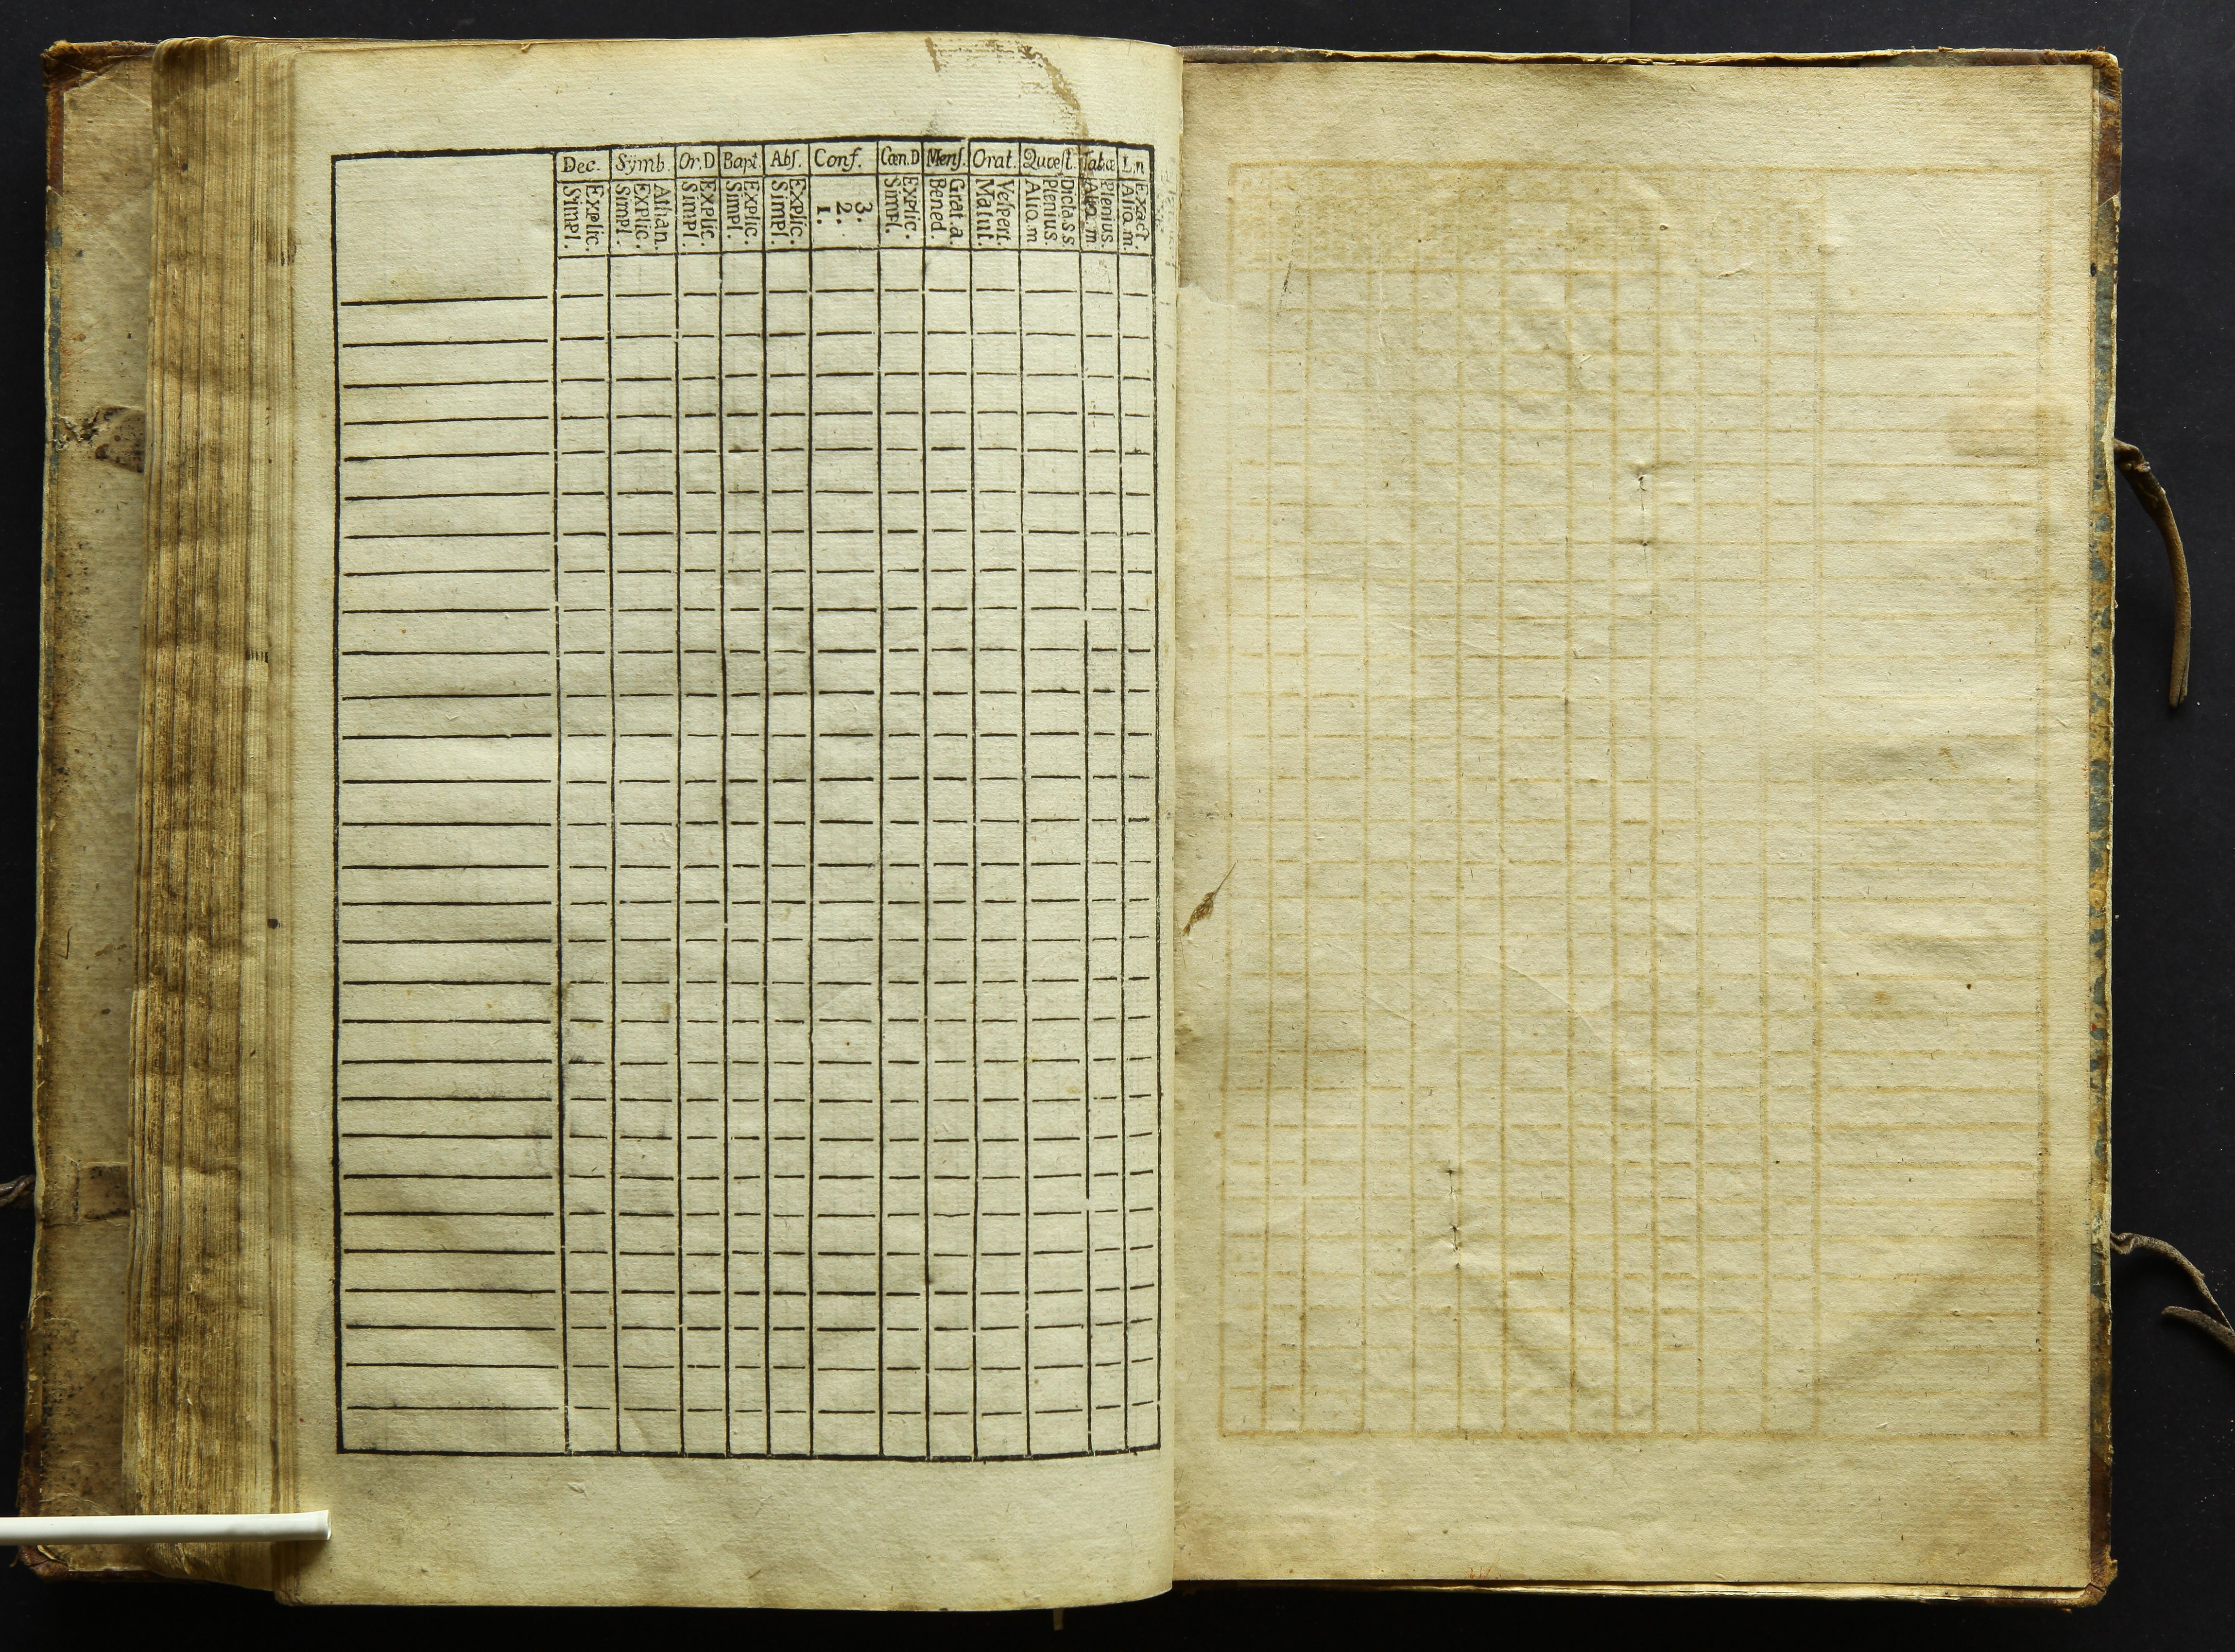 Dec. Sÿmb. Or.D Bapt Abſ. Conf. Cœn.D Menſ. Orat. Quæſt. Tabæ L.n
Simpl. Explic.
Simpl. Explic. Athan.
Simpl. Explic.
Simpl. Explic.
Simpl. Explic.
1. 2. 3.
Simpl. Explic.
Bened. Grat. a.
Matut. Veſpert.
Alio.m Plenius. Dicta.s.s
Alio.m Plenius.
Alio.m. Exact.